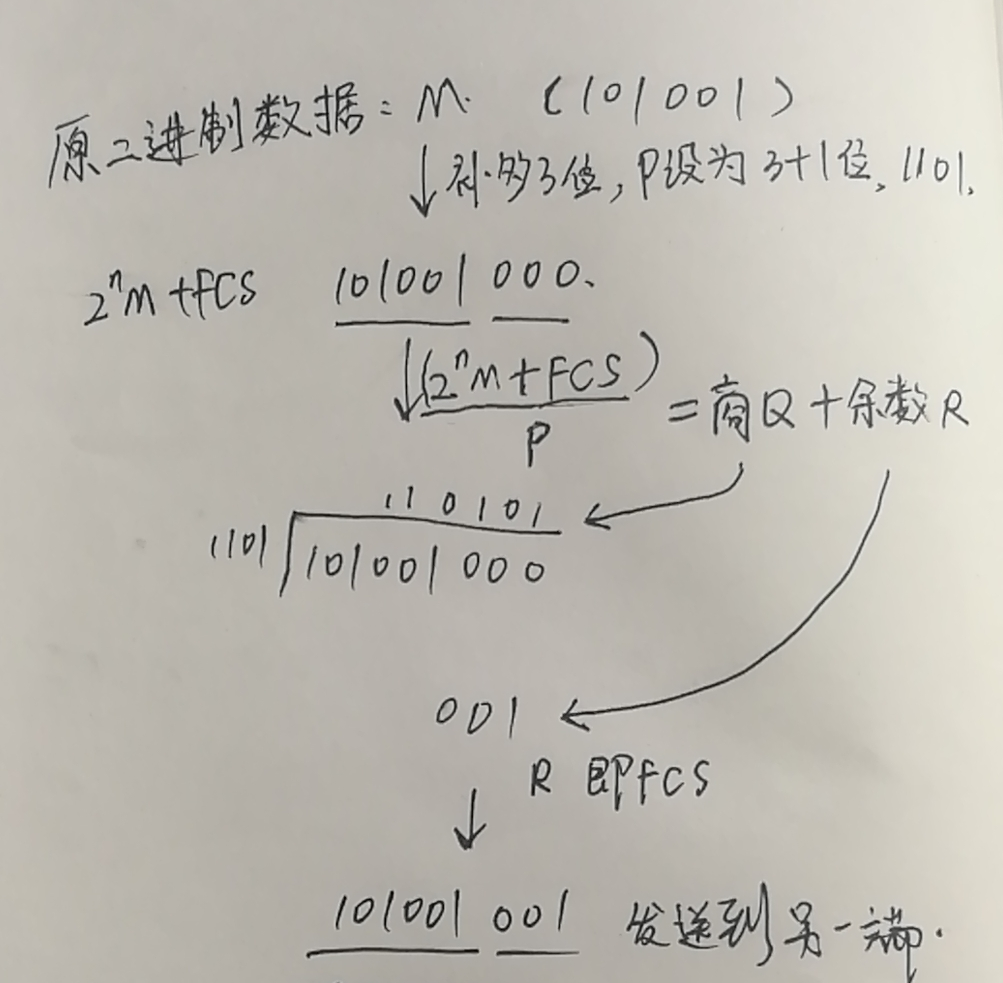 原二进制数据: M. (101001)
↓补够3位, P设为3+1位, 1101,
2ⁿM+FCS 101001 000.
↓(2ⁿM+FCS)
P
=商Q+余数R
110101
1101 101001 000
001
R 即FCS
↓
101001 001 发送到另一端.